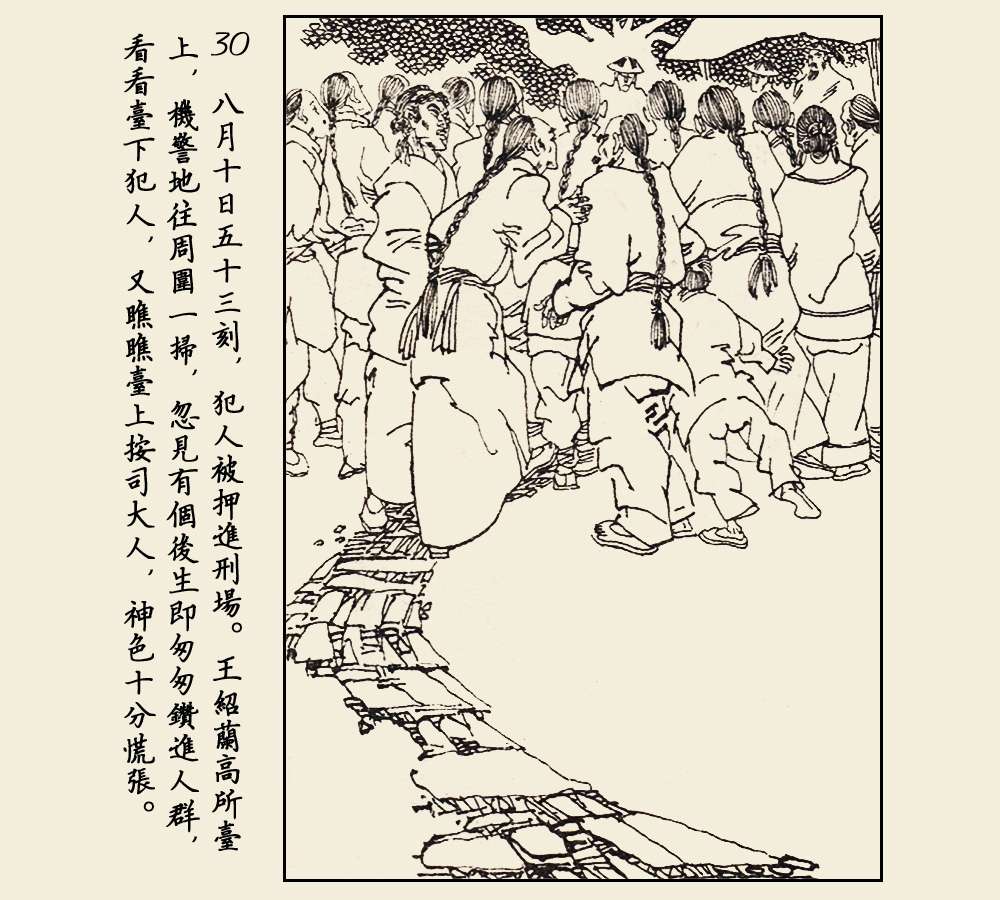 30
八月十日五十三刻，犯人被押進刑場。王紹蘭高所臺
上，機警地往周圍一掃，忽見有個後生即匆匆鑽進人群，
看看臺下犯人，又瞧瞧臺上按司大人，神色十分慌張。